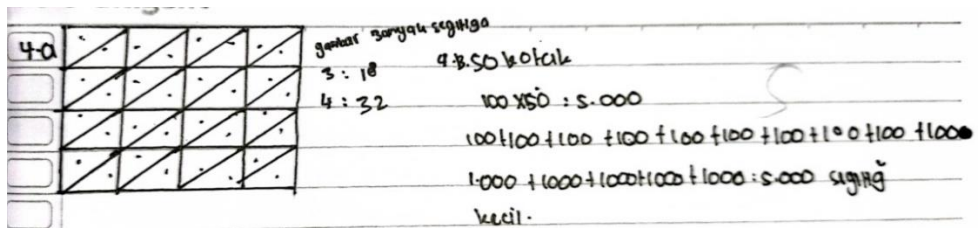 4.a
gambar banyak segitiga
3 : 18
4 : 32
4.B. 50 kotak
100 x 50 : 5.000
100+100+100+100+100+100+100+100+100+100
1.000+1000+1000+1000+1000:5.000 segitig
kecil.